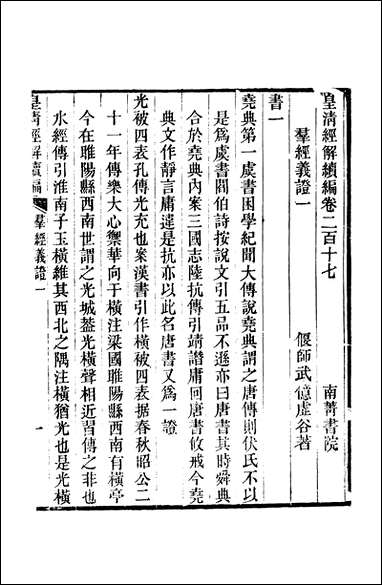 皇清經解續編卷二百十七　南菁書院
羣經義證一　偃師武億虛谷著
書一
堯典第一虞書困學紀聞大傳說堯典謂之唐傳則伏氏不以
是爲虞書閻伯詩按說文引五品不遜亦曰唐書其時舜典
合於堯典內案三國志陸抗傳引靖譖庸回唐書攸戒今堯
典文作靜言庸違是抗亦以此名唐書又爲一證
光被四表孔傳光充也案漢書引作橫被四表据春秋昭公二
十一年傳樂大心禦華向于橫注梁國睢陽縣西南有橫亭
今在睢陽縣西南世謂之光城葢光橫聲相近習傳之非也
水經傳引淮南子玉橫維其西北之隅注橫猶光也是光橫
皇清經解續編　羣經義證一　一